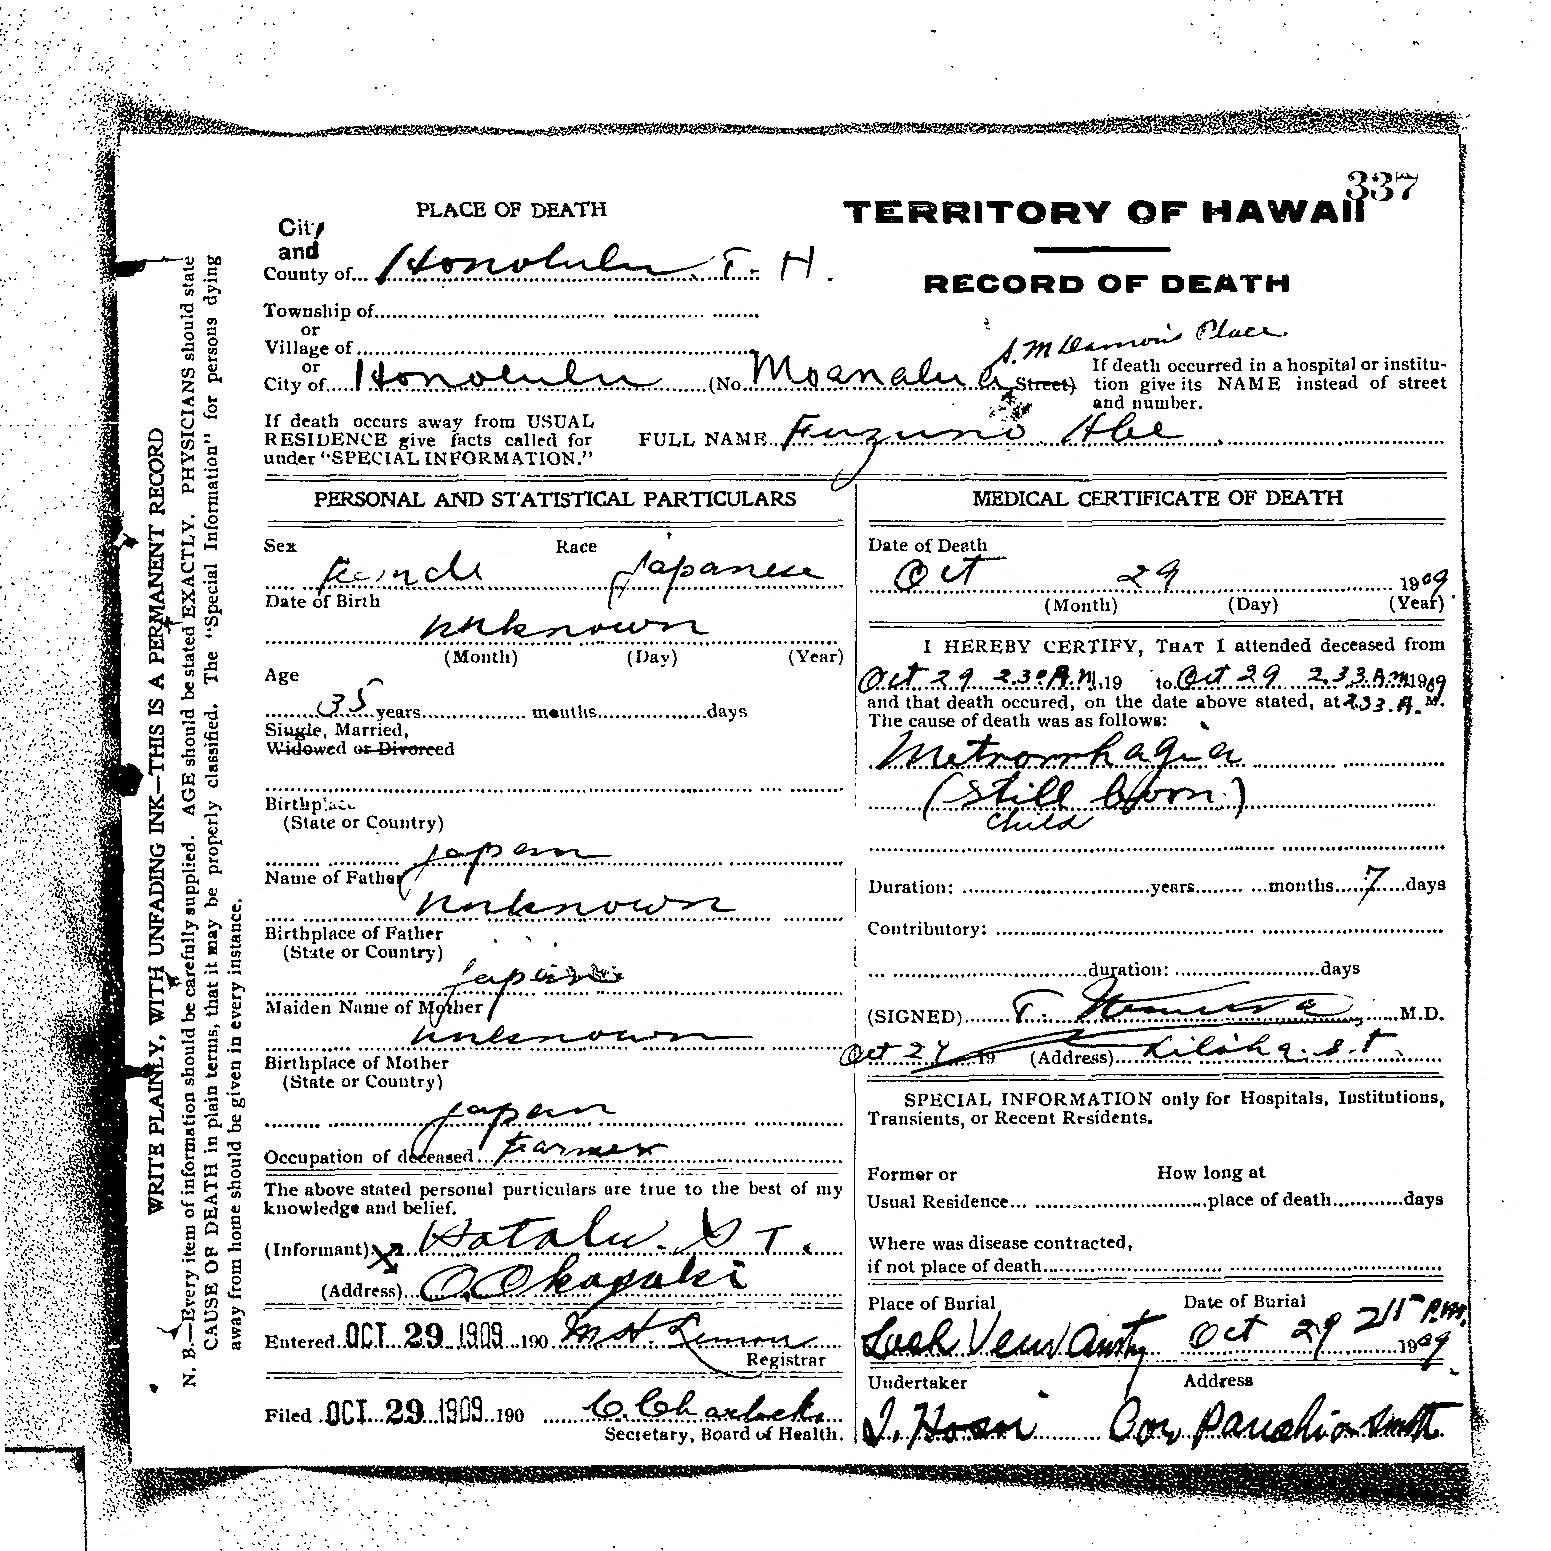 337
TERRITORY OF HAWAII
RECORD OF DEATH
WRITE PLAINLY, WITH UNFADING INK—THIS IS A PERMANENT RECORD
N. B.—Every item of information should be carefully supplied. AGE should be stated EXACTLY. PHYSICIANS should state
CAUSE OF DEATH in plain terms, that it may be properly classified. The "Special Information" for persons dying
away from home should be given in every instance.
PLACE OF DEATH
City
and
County of Honolulu. T. H.
Township of
or
Village of
or
City of Honolulu (No. Moanalua Street)
S. M Damon's Place
If death occurred in a hospital or institu-
tion give its NAME instead of street
and number.
If death occurs away from USUAL
RESIDENCE give facts called for
under "SPECIAL INFORMATION."
FULL NAME Fuzuno Abe
PERSONAL AND STATISTICAL PARTICULARS
Sex Race
Female Japanese
Date of Birth
unknown
(Month) (Day) (Year)
Age
35 years months days
Single, Married,
Widowed or Divorced
Birthplace
(State or Country)
Japan
Name of Father
unknown
Birthplace of Father
(State or Country)
Japan
Maiden Name of Mother
unknown
Birthplace of Mother
(State or Country)
Japan
Occupation of deceased Farmer
The above stated personal particulars are true to the best of my
knowledge and belief.
(Informant)
(Address) O. Okazaki
Entered OCT 29 1909 190
Registrar
Filed OCT 29 1909 190 C. Charlock
Secretary, Board of Health.
MEDICAL CERTIFICATE OF DEATH
Date of Death
Oct 29 1909
(Month) (Day) (Year)
I HEREBY CERTIFY, THAT I attended deceased from
Oct 29 2.30 A.M. 19 to Oct 29 2.33 A.M 1909
and that death occured, on the date above stated, at 2.33. A. M.
The cause of death was as follows:
Metrorrhagia
(Still born)
child
Duration: years months 7 days
Contributory:
duration: days
(SIGNED) T. M.D.
Oct 29 19 (Address) Liliha. st.
SPECIAL INFORMATION only for Hospitals, Institutions,
Transients, or Recent Residents.
Former or How long at
Usual Residence place of death days
Where was disease contracted,
if not place of death
Place of Burial Date of Burial
Loch View Oct 29 215 P.M. 1909
Undertaker Address
Cor Pauahi & Smith